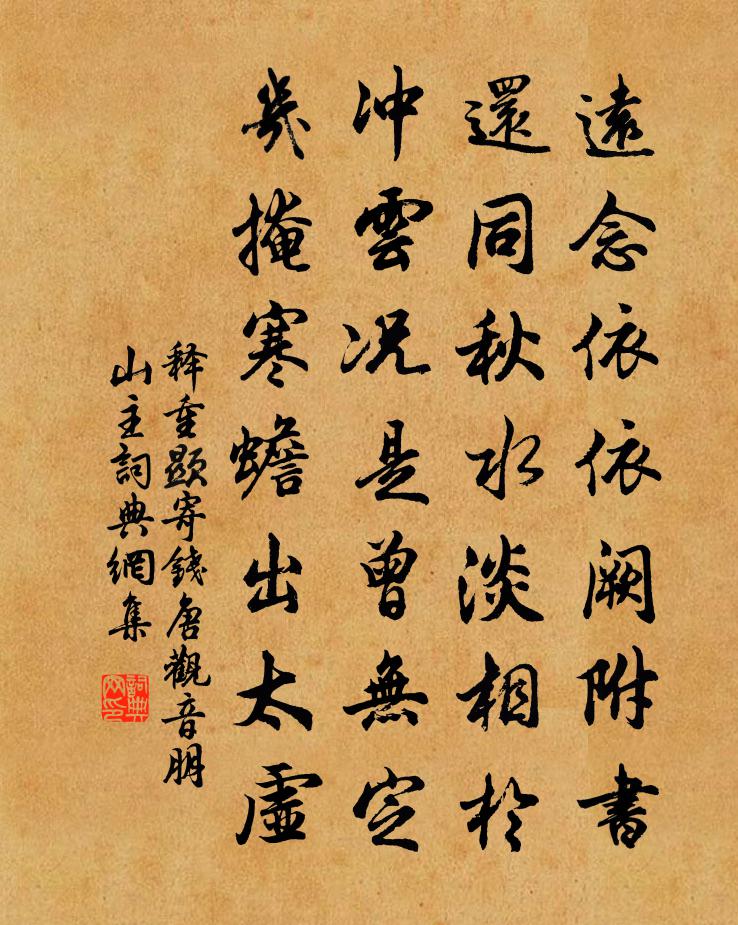 遠念依依闕附書
還同秋水淡相於
冲雲况是曾無定
幾掩寒蟾出太虛
释重顯寄錢唐觀音朋
山主詞典網集
詞典
网印